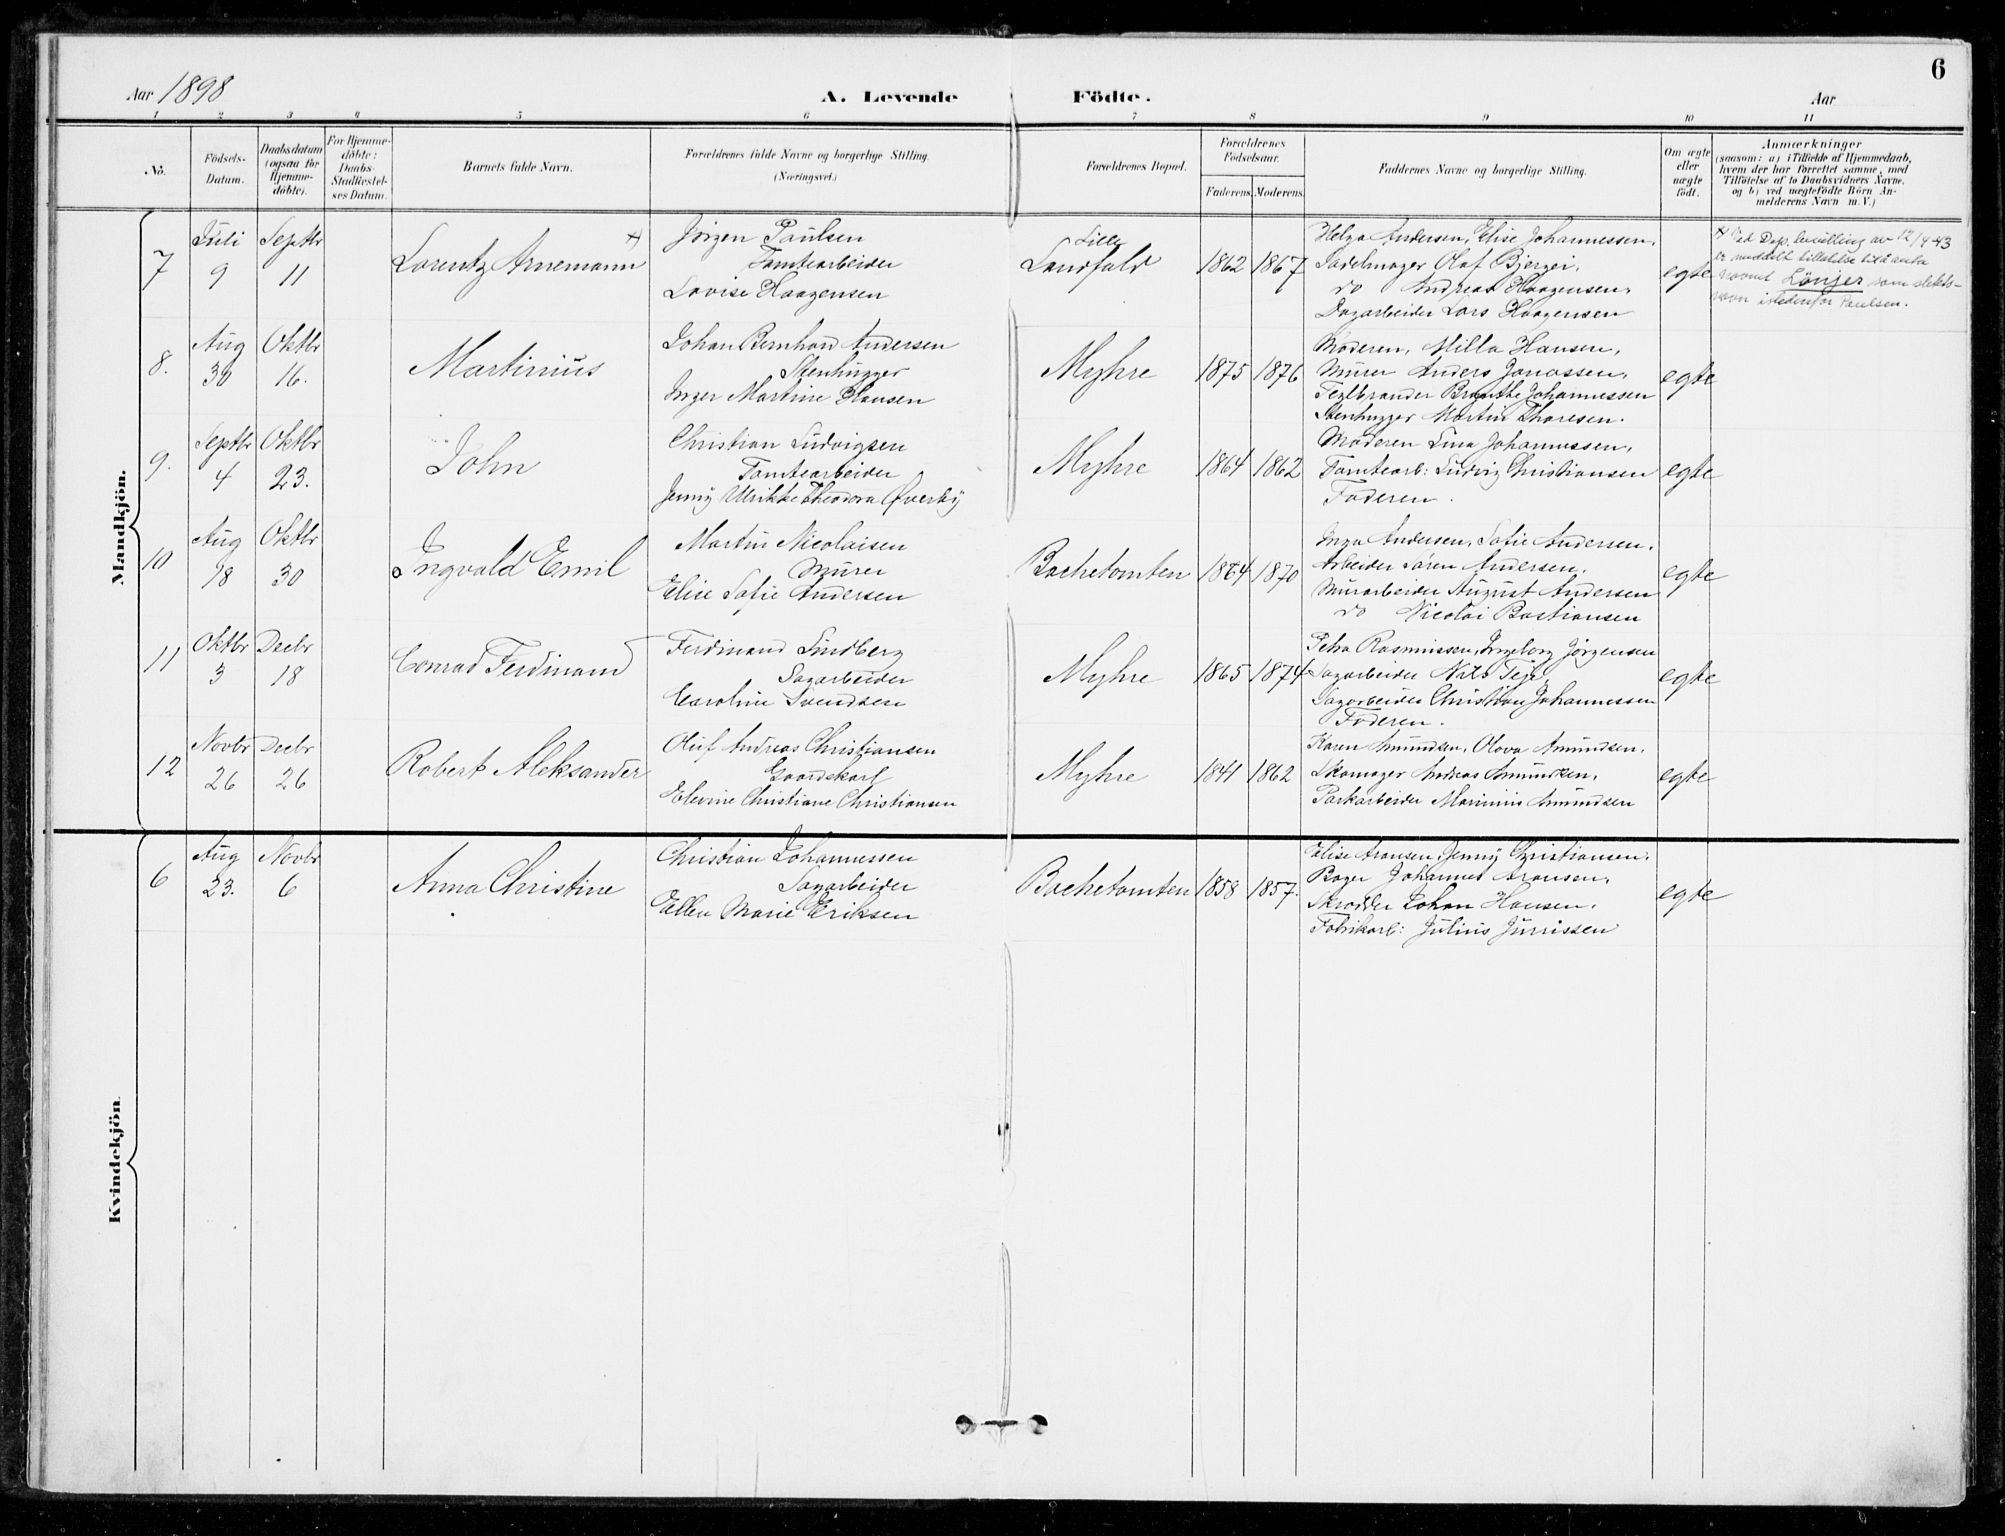 6
Aar 1898
A. Levende Födte.
Aar
1 2 3 4 5 6 7 8 9 10 11
No.
Födsels-Datum.
Daabsdatum (ogsaa for Hjemme-döbte).
For Hjemme-döbte: Daabs-Stadfæstel-ses Datum.
Barnets fulde Navn.
Forældrenes fulde Navne og borgerlige Stilling. (Næringsvei.)
Forældrenes Bopæl.
Forældrenes Födselsaar.
Faderens. Moderens.
Faddernes Navne og borgerlige Stilling.
Om ægte eller uægte født.
Anmærkninger
(saasom: a) i Tilfælde af Hjemmedaab,
hvem der har forrettet samme, med
Tilföielse af to Daabsvidners Navne,
og b) ved uægtefödte Börn An-
melderens Navn m. V.)
Mandkjön.
7
Juli 9
Septbr 11
Lorentz Arnemann
Jörgen Paulsen
Tomtearbeider
Lovise Haagensen
Lille
Landfald
1862 1867
Helga Andersen, Elise Johannessen,
Sadelmager Olaf Bjerger,
do Andreas Haagensen,
Dagarbeider Lars Haagensen
egte
Ved Dep. bevilling av 12/4-43
er meddelt tillatelse til å anta
navnet Lönjer som slekts-
navn istedenfor Paulsen.
8.
Aug 30
Oktbr 16.
Martinius
Johan Bernhard Andersen
Stenhugger
Inger Martine Hansen
Myhre
1875 1876
Moderen, Milla Hansen,
Murer Anders Jonassen,
Teglbrænder Johannessen
Stenhugger Martin Thoresen.
egte
9.
Septbr 4
Oktbr 23.
John
Christian Ludvigsen
Tomtearbeider
Jenny Ulrikke Theodora Øverby
Myhre
1864 1862
Moderen Lina Johannessen,
Tomtearb: Ludvig Christiansen
Faderen.
egte
10
Aug 18
Oktbr 30
Ingvald Emil
Martin Nicolaisen
Murer
Elise Sofie Andersen
Bachetomten
1864 1870
Inga Andersen, Sofie Andersen,
Arbeider Sören Andersen,
Murarbeider August Andersen
do Nicolai Bastiansen
egte
11
Oktbr 3
Decbr 18
Conrad Ferdinand
Ferdinand Lindberg
Sagarbeider
Caroline Svendsen
Myhre
1865 1874
Petra Rasmussen, Ingeborg Jörgensen
Sagarbeider Nils
Sagarbeider Christian Johannessen
Faderen.
egte
12
Novbr 26
Decbr 26
Robert Aleksander
Oluf Andreas Christiansen
Gaardskarl
Elevine Christiane Christiansen
Myhre
1841 1862
Karen Amundsen, Olava Amundsen,
Skomager Andreas Amundsen,
Parkarbeider Marinius Amundsen
egte
Kvindekjön.
6
Aug 23.
Novbr 6
Anna Christine
Christian Johannessen
Sagarbeider
Ellen Marie Eriksen
Bachetomten
1858 1857.
Elise Aronsen, Jenny Christiansen,
Bager Johannes Aronsen,
Skrædder Johan Hansen,
Fabrikarb: Julius Jurrissen
egte